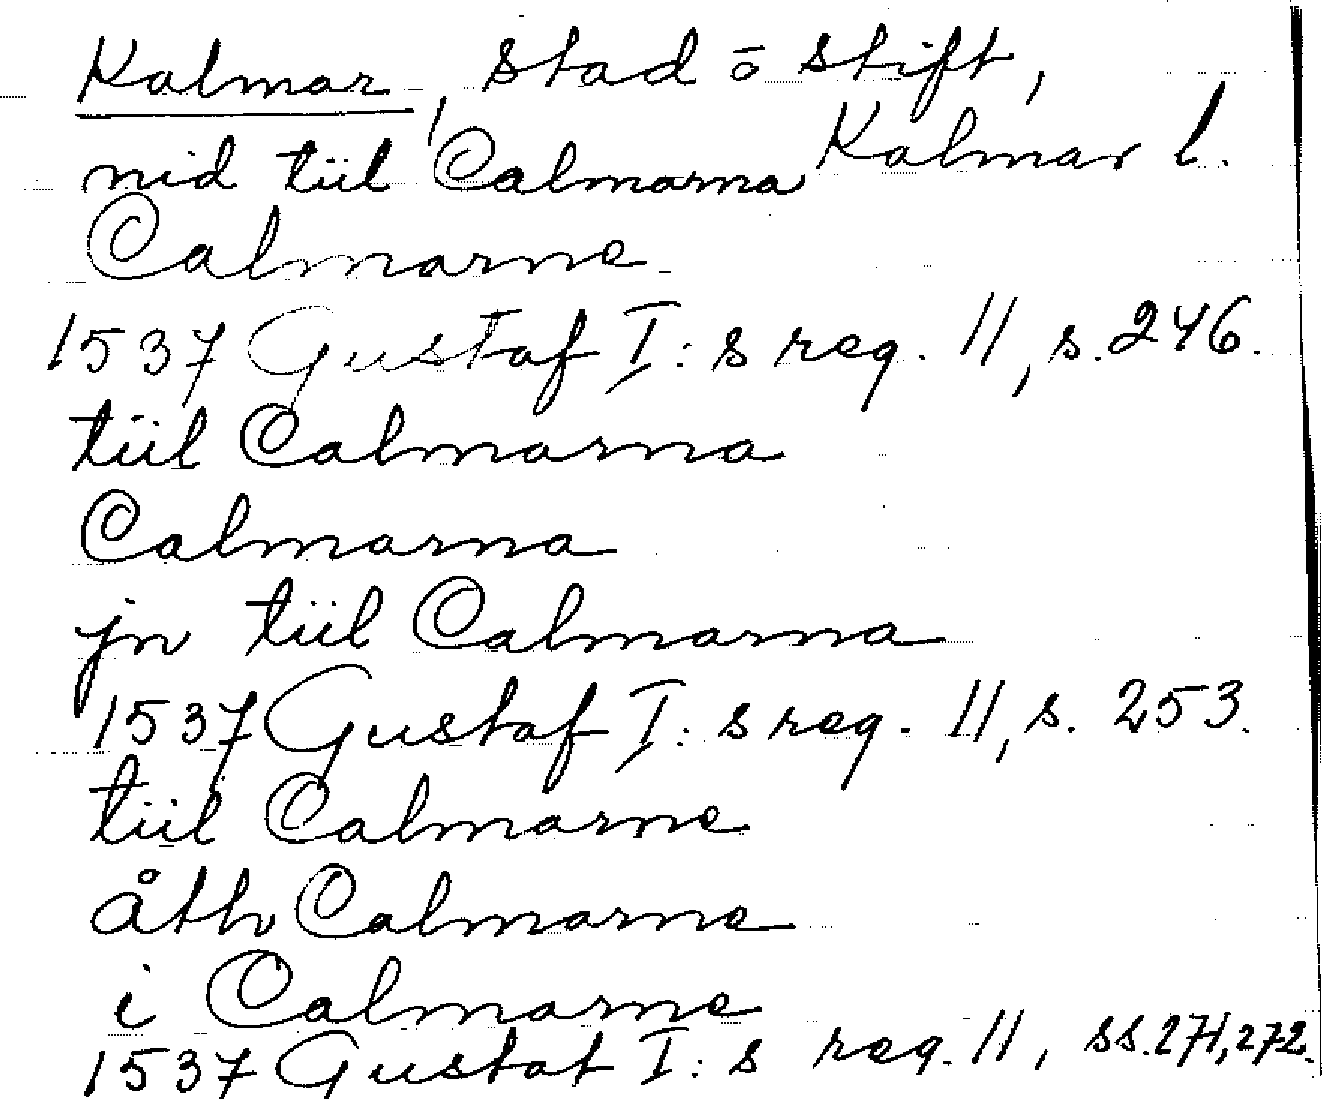 Kalmar, stad o stift,
Kalmar l.
nid tiil Calmarna
Calmarne
1537 Gustaf I:s reg. 11, s. 246.
tiil Calmarna
Calmarna
jn tiil Calmarna
1537 Gustaf I:s reg. 11, s. 253.
tiil Calmarne
åth Calmarne
i Calmarne
1537 Gustaf I:s reg. 11, ss. 271, 272.